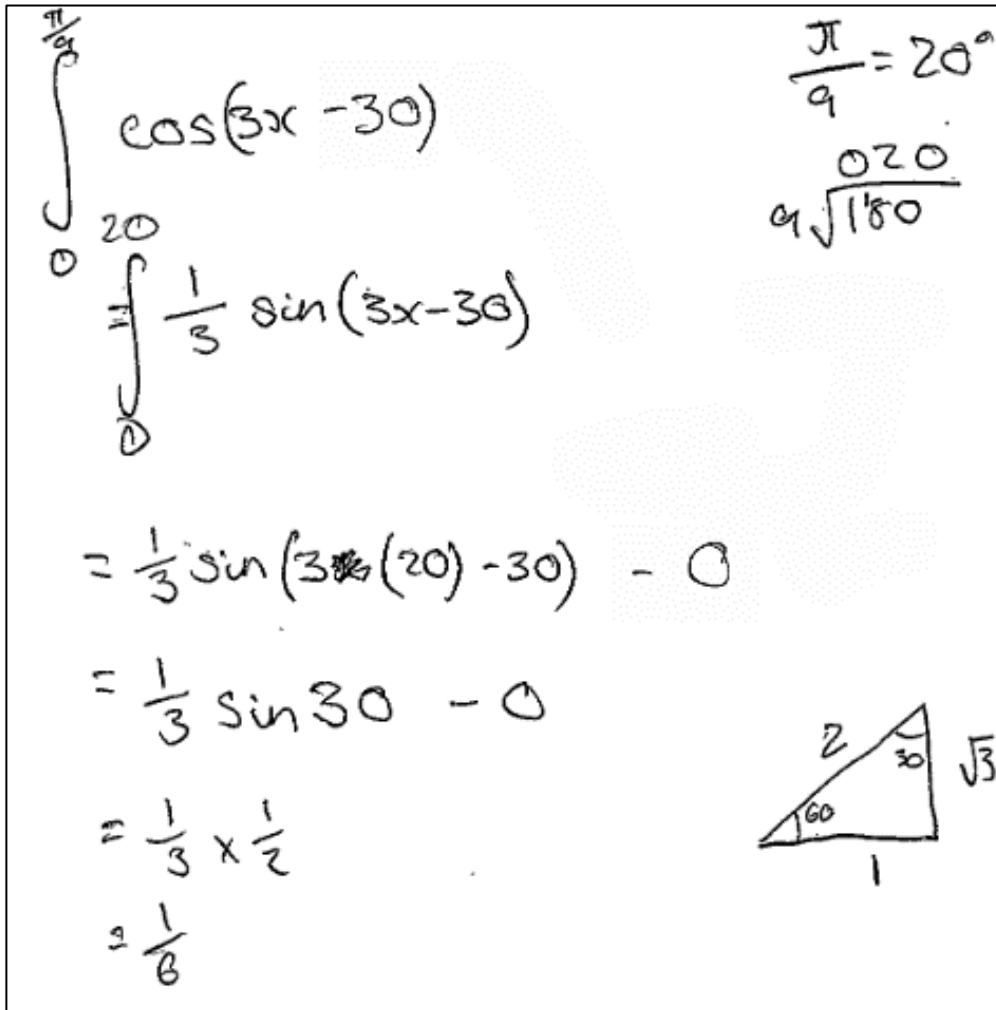 ∫₀^(π/9) cos(3x - 30)
π/9 = 20°
020
9√180
= ∫₀^20 1/3 sin(3x-30)
= 1/3 sin(3(20) - 30) - 0
= 1/3 sin 30 - 0
= 1/3 x 1/2
= 1/6
2 30 √3
60
1